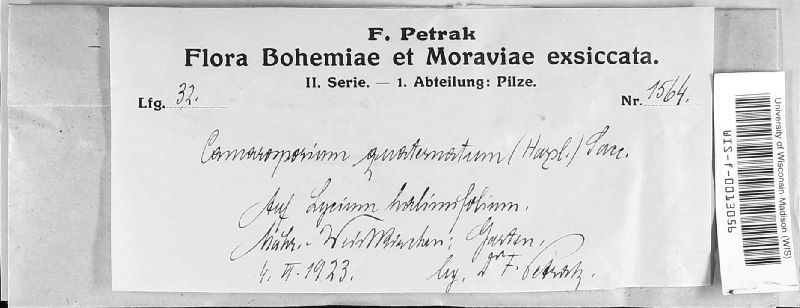 F. Petrak
Flora Bohemiae et Moraviae exsiccata.
II. Serie. — 1. Abteilung: Pilze.
Lfg. 32. Nr. 1564.
Camarosporium quaternatum (Hazl.) Sacc.
Auf Lycium halimifolium.
Mähr.-Weisskirchen: Garten.
4. VI. 1923. leg. Dr F. Petrak.
University of Wisconsin-Madison (WIS)
WIS-f-0013056